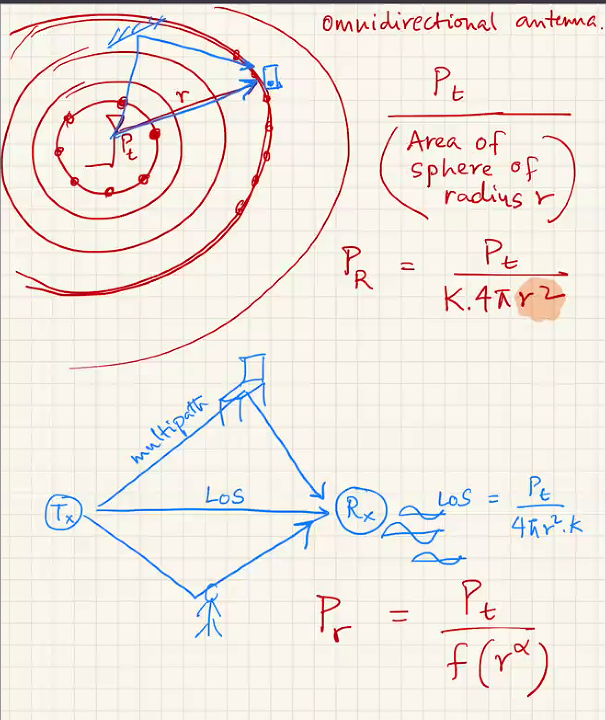 omnidirectional antenna.
r
P_t
P_t
(Area of
sphere of
radius r)
P_R = P_t
K.4πr²
multipath
LoS
T_x
R_x
LoS = P_t
4πr².k
P_r = P_t
f(r^α)